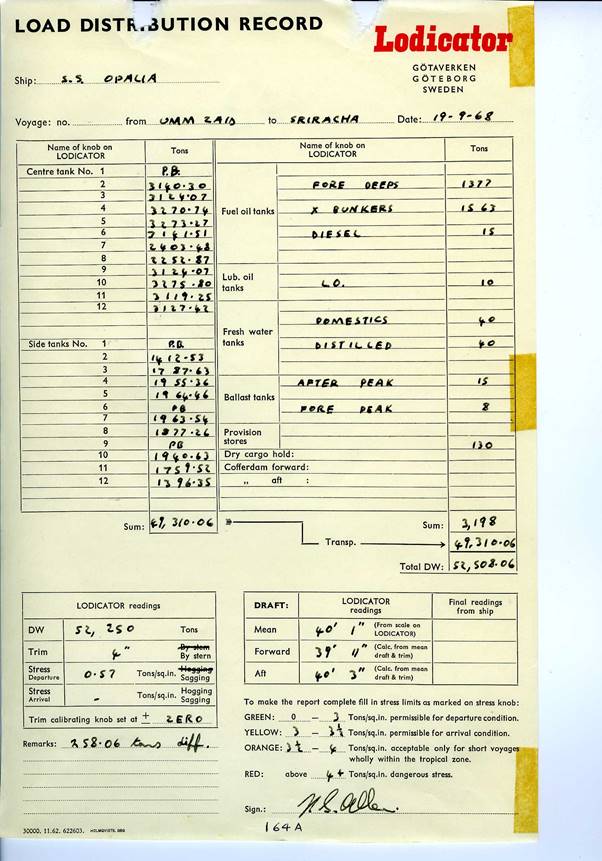 LOAD DISTRIBUTION RECORD
Lodicator
GÖTAVERKEN
GÖTEBORG
SWEDEN
Ship: S.S. OPALIA
Voyage: no. from UMM ZAID to SRIRACHA Date: 19-9-68
Name of knob on LODICATOR Tons Name of knob on LODICATOR Tons
Centre tank No. 1 P.B.
2 3140.30
3 3124.07
4 3270.74
5 3273.27
6 3141.51
7 2403.48
8 2252.87
9 3124.07
10 3275.80
11 3119.25
12 3127.42
Side tanks No. 1 P.B.
2 1412.53
3 1787.63
4 1955.36
5 1964.46
6 PB
7 1963.54
8 1877.26
9 PB
10 1940.63
11 1759.52
12 1396.35
Sum: 49,310.06
Fuel oil tanks
FORE DEEPS 1377
X BUNKERS 1563
DIESEL 15
Lub. oil tanks
L.O. 10
Fresh water tanks
DOMESTICS 40
DISTILLED 40
Ballast tanks
AFTER PEAK 15
FORE PEAK 8
Provision stores 130
Dry cargo hold:
Cofferdam forward:
„ aft :
Sum: 3,198
Transp. 49,310.06
Total DW: 52,508.06
LODICATOR readings
DW 52,250 Tons
Trim 4" By stem
By stern
Stress Departure 0.57 Tons/sq.in. Hogging
Sagging
Stress Arrival - Tons/sq.in. Hogging
Sagging
Trim calibrating knob set at ± ZERO
Remarks: 258.06 tons diff.
DRAFT: LODICATOR readings Final readings from ship
Mean 40' 1" (From scale on LODICATOR)
Forward 39' 11" (Calc. from mean draft & trim)
Aft 40' 3" (Calc. from mean draft & trim)
To make the report complete fill in stress limits as marked on stress knob:
GREEN: 0 – 3 Tons/sq.in. permissible for departure condition.
YELLOW: 3 – 3½ Tons/sq.in. permissible for arrival condition.
ORANGE: 3½ – 4 Tons/sq.in. acceptable only for short voyages
wholly within the tropical zone.
RED: above 4+ Tons/sq.in. dangerous stress.
Sign.: N.S. Allen.
164A
30000. 11.62. 622603. HOLMQVISTS, GBG